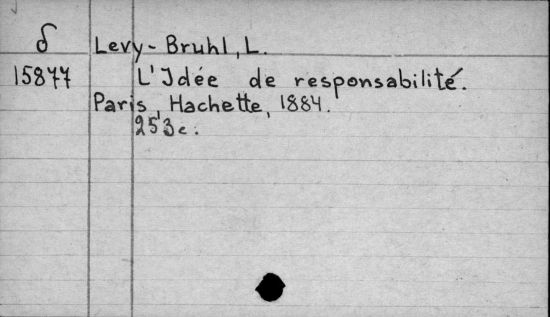 δ Levy-Bruhl, L.
15877 L'Idée de responsabilité.
Paris, Hachette, 1884.
253 c.